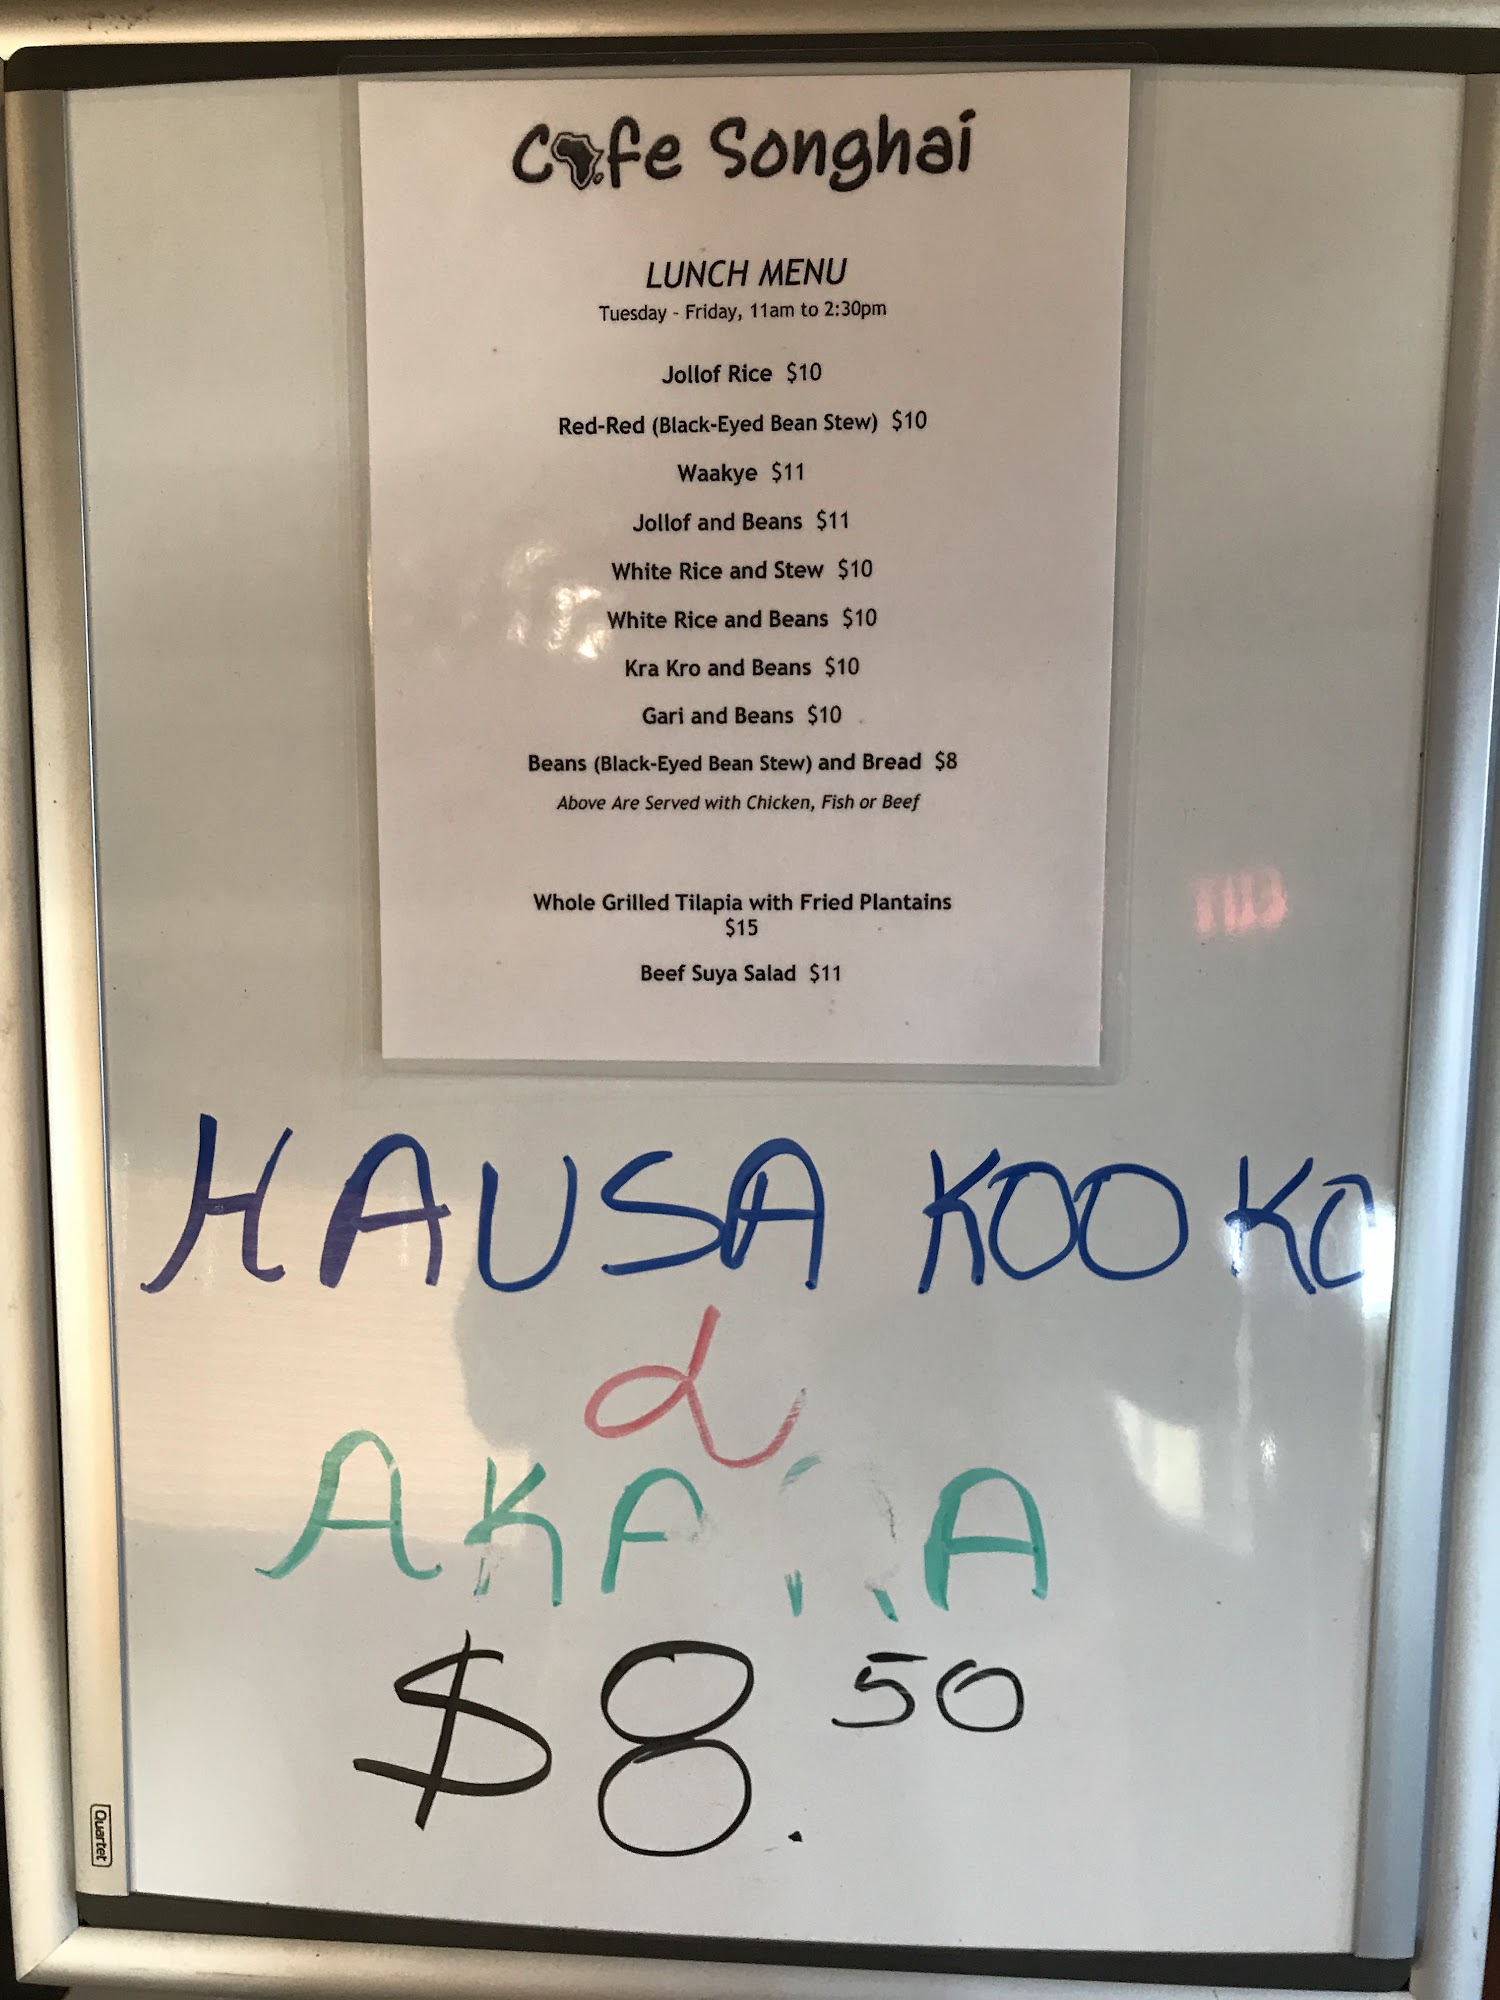 Cafe Songhai
LUNCH MENU
Tuesday - Friday, 11am to 2:30pm
Jollof Rice $10
Red-Red (Black-Eyed Bean Stew) $10
Waakye $11
Jollof and Beans $11
White Rice and Stew $10
White Rice and Beans $10
Kra Kro and Beans $10
Gari and Beans $10
Beans (Black-Eyed Bean Stew) and Bread $8
Above Are Served with Chicken, Fish or Beef
Whole Grilled Tilapia with Fried Plantains
$15
Beef Suya Salad $11
HAUSA KOOKO
&
$8.50
Quartet